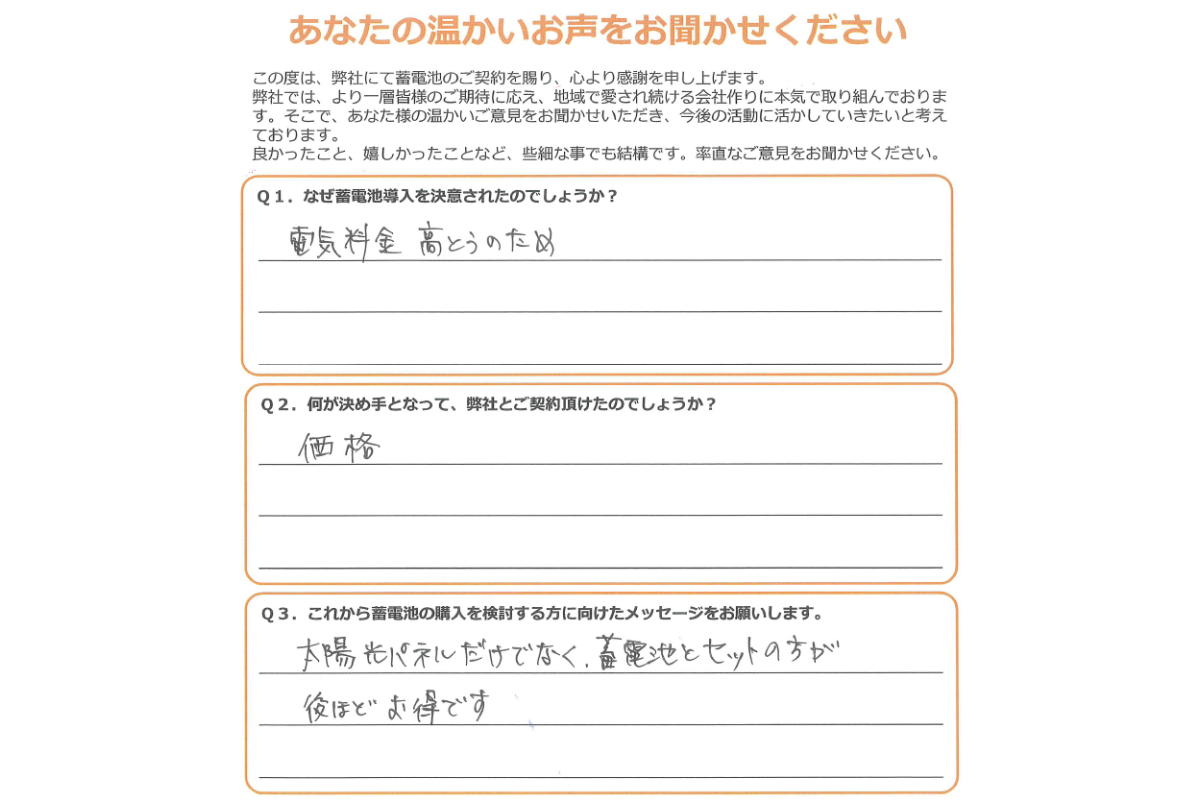 あなたの温かいお声をお聞かせください
この度は、弊社にて蓄電池のご契約を賜り、心より感謝を申し上げます。
弊社では、より一層皆様のご期待に応え、地域で愛され続ける会社作りに本気で取り組んでおりま
す。そこで、あなた様の温かいご意見をお聞かせいただき、今後の活動に活かしていきたいと考え
ております。
良かったこと、嬉しかったことなど、些細な事でも結構です。率直なご意見をお聞かせください。
Q１．なぜ蓄電池導入を決意されたのでしょうか？
電気料金 高とうのため
Q２．何が決め手となって、弊社とご契約頂けたのでしょうか？
価格
Q３．これから蓄電池の購入を検討する方に向けたメッセージをお願いします。
太陽光パネルだけでなく、蓄電池とセットの方が
後ほどお得です